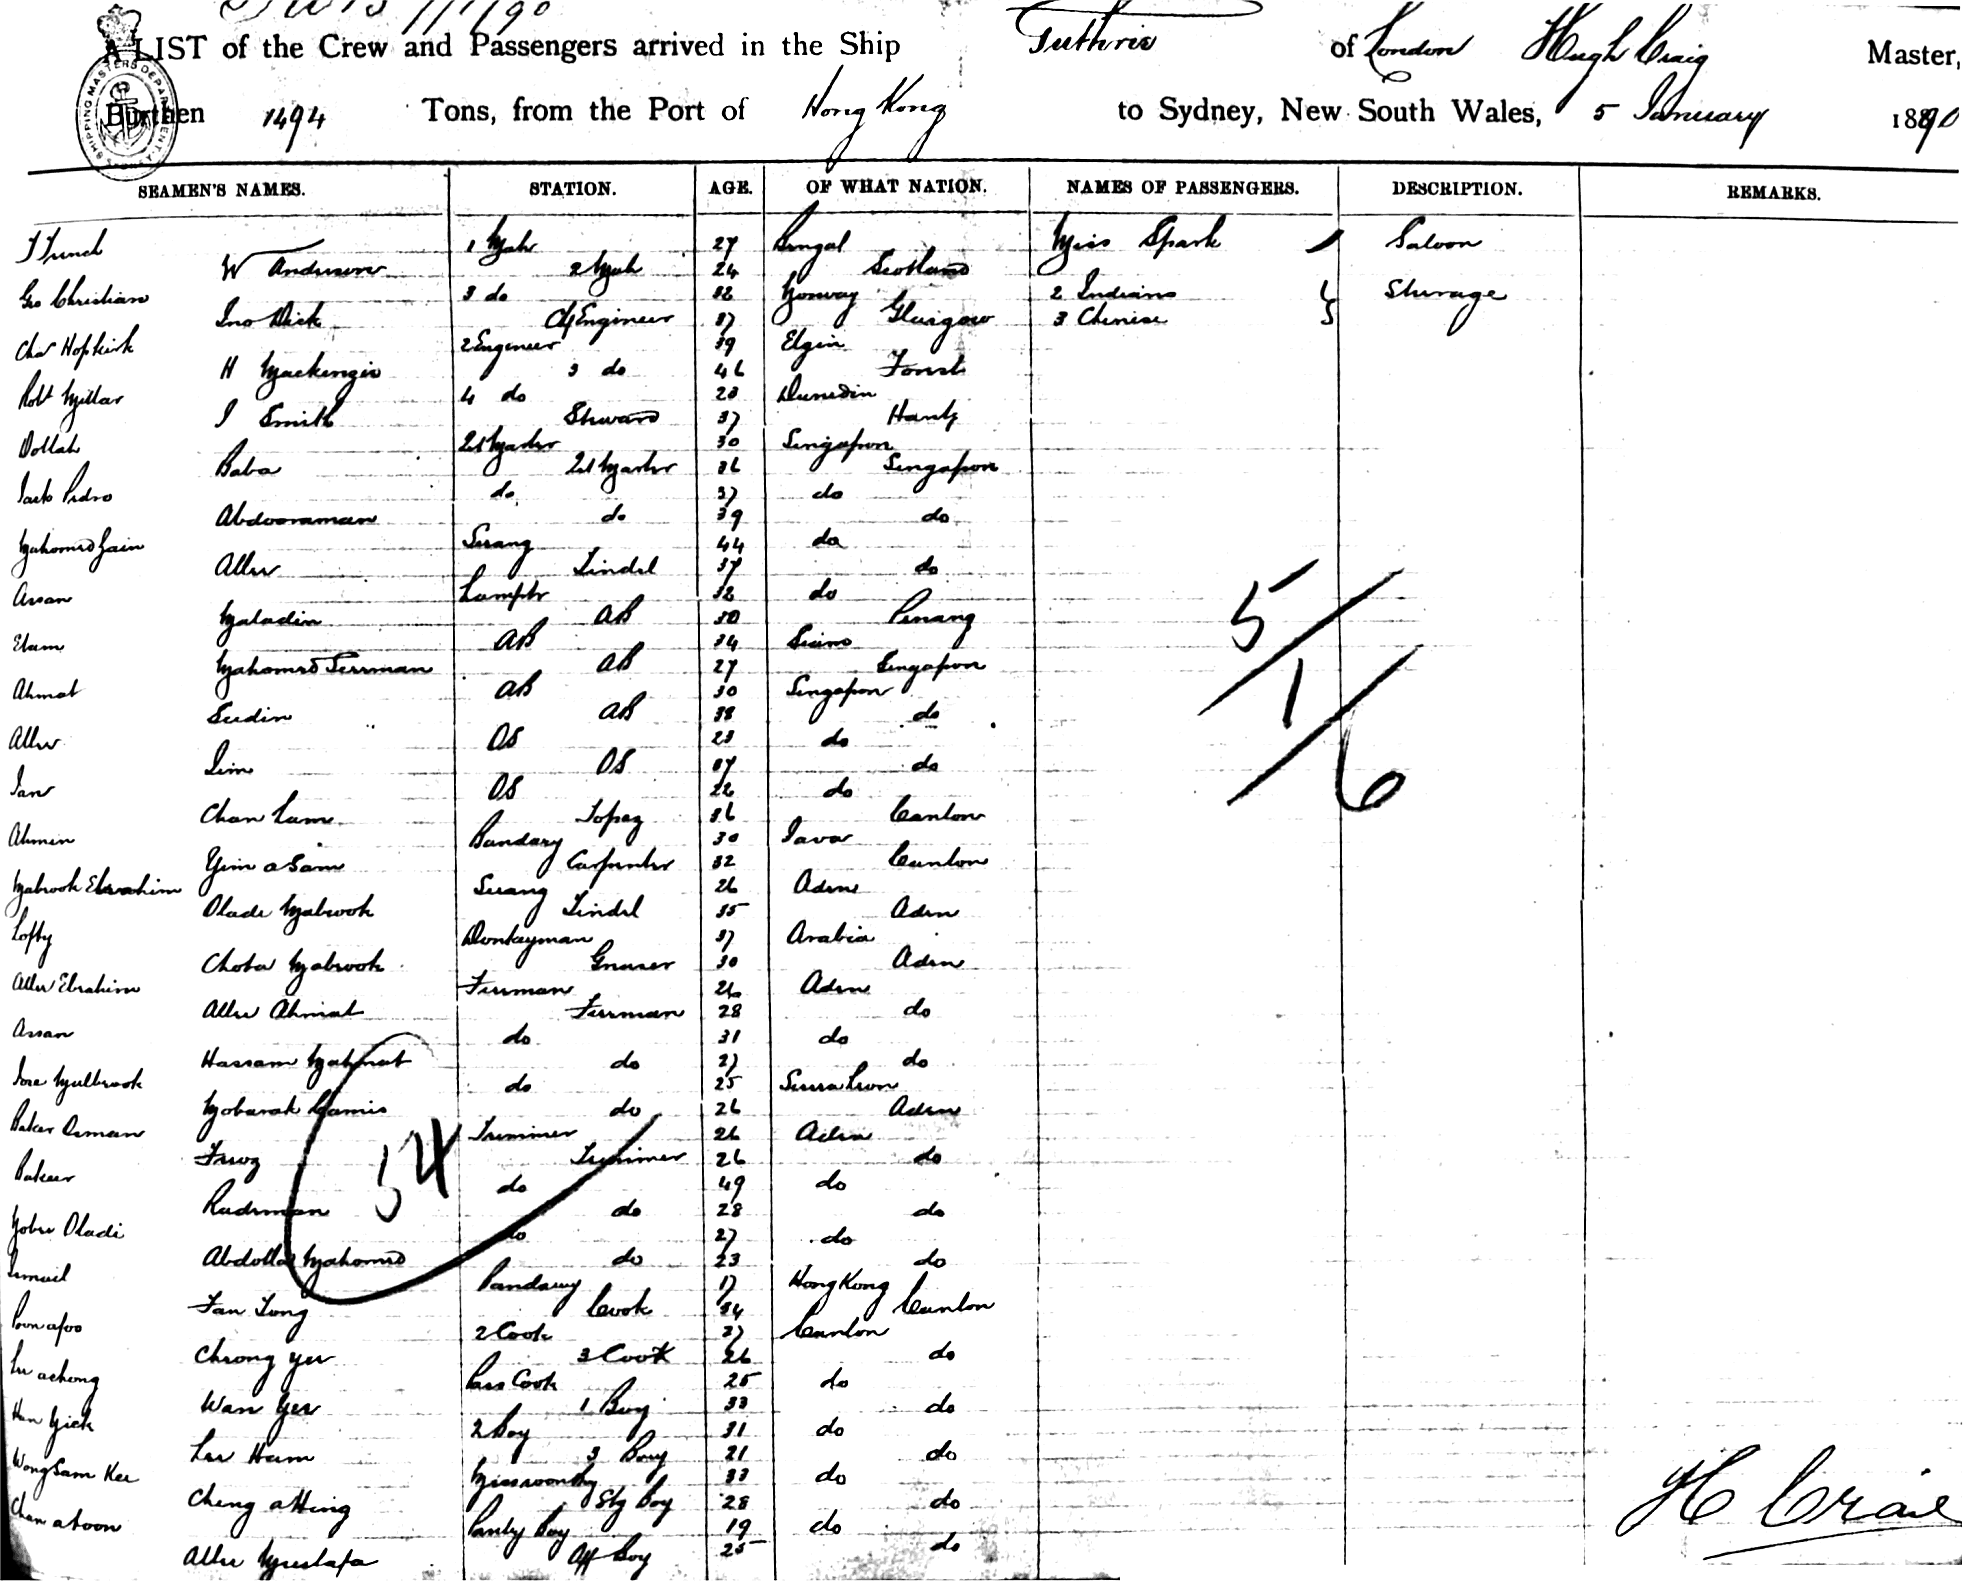 A LIST of the Crew and Passengers arrived in the Ship Guthrie of London Hugh Craig Master,
Burthen 1494 Tons, from the Port of Hong Kong to Sydney, New South Wales, 5 January 1890
SEAMEN'S NAMES. STATION. AGE. OF WHAT NATION. NAMES OF PASSENGERS. DESCRIPTION. REMARKS.
1 Mate 27 Bengal Miss Spark / Saloon
W Anderson 2 Mate 24 Scotland
Geo Christian 3 do 32 Norway 2 Indians } Steerage
Jno Dick Ch Engineer 37 Glasgow 3 Chinese
Chas Hopkirk 2 Engineer 39 Elgin
H Mackenzie 3 do 46 Forest
Robt Millar 4 do 23 Dunedin
J Smith Steward 37 Hants
Dollah 30 Singapore
Baba 36 Singapore
Jacob Pedro do 37 do
Abdooraman do 39 do
Mahomed Jain Serang 44 do
Allee Tindel 37 do
Assan Lamptr 32 do
Maladin AB 30 Penang
Elam AB 34
Mahomed Serman AB 27 Singapore
Ahmat AB 30 Singapore
Sudin AB 38 do
Allee OS 23 do
Sim OS 37 do
Jan OS 22 do
Chan Lam Topaz 36 Canton
Ahmen Bandary 30 Java
Yim a Sam Carpenter 32 Canton
Mabrook Ebrahim Serang 26 Aden
Olade Mabrook Tindel 35 Aden
Lofty Donkeyman 37 Arabia
Chota Mabrook Greaser 30 Aden
Allee Ebrahim Fireman 26 Aden
Allee Ahmat Fireman 28 do
Assan do 31 do
Hassam Mahmat do 27 do
Jose Mulbrook do 25 Sierra Leon
Mobarak Camis do 26 Aden
Baker Osman Trimmer 26 Aden
Feroz Trimmer 26 do
Bakeer do 49 do
Rudeman do 28 do
Mobee Oladi do 27 do
Abdolla Mahomed do 23 do
Ismail Pandawy 17 Hong Kong
Fan Tong Cook 34 Canton
Poon afoo 2 Cook 37 Canton
Chong yee 3 Cook 26 do
Lee achong Pass Cook 25 do
Wan Yee 1 Boy 33 do
Han Yick 2 Boy 31 do
Lee Ham 3 Boy 21 do
Wong Sam Kee Messroom Boy 33 do
Cheng a Hing Stg Boy 28 do
Chan a toon Pantry Boy 19 do
Allee Mustafa Aff Boy 25 do
5/1/6
54
H Craig